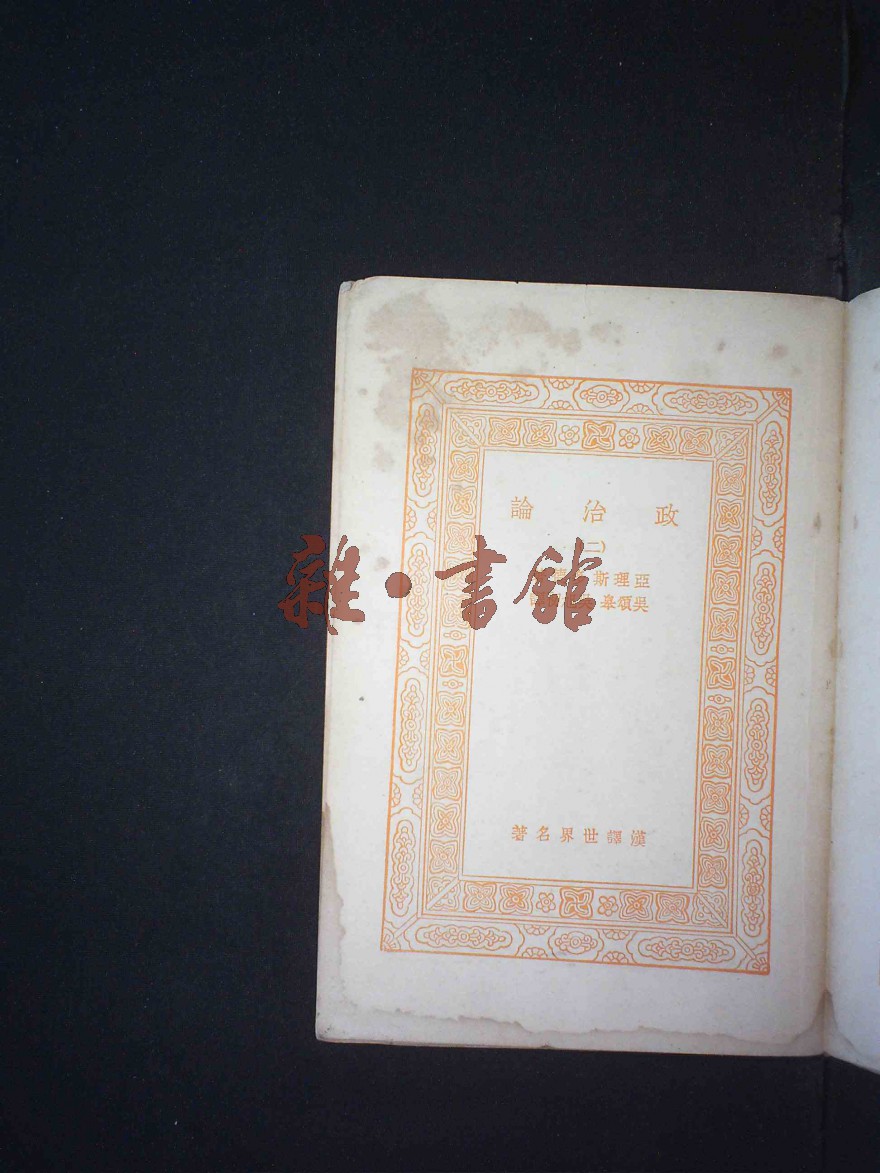 政治論
(二)
亞理斯
吳頌皋
漢譯世界名著
雜·書館